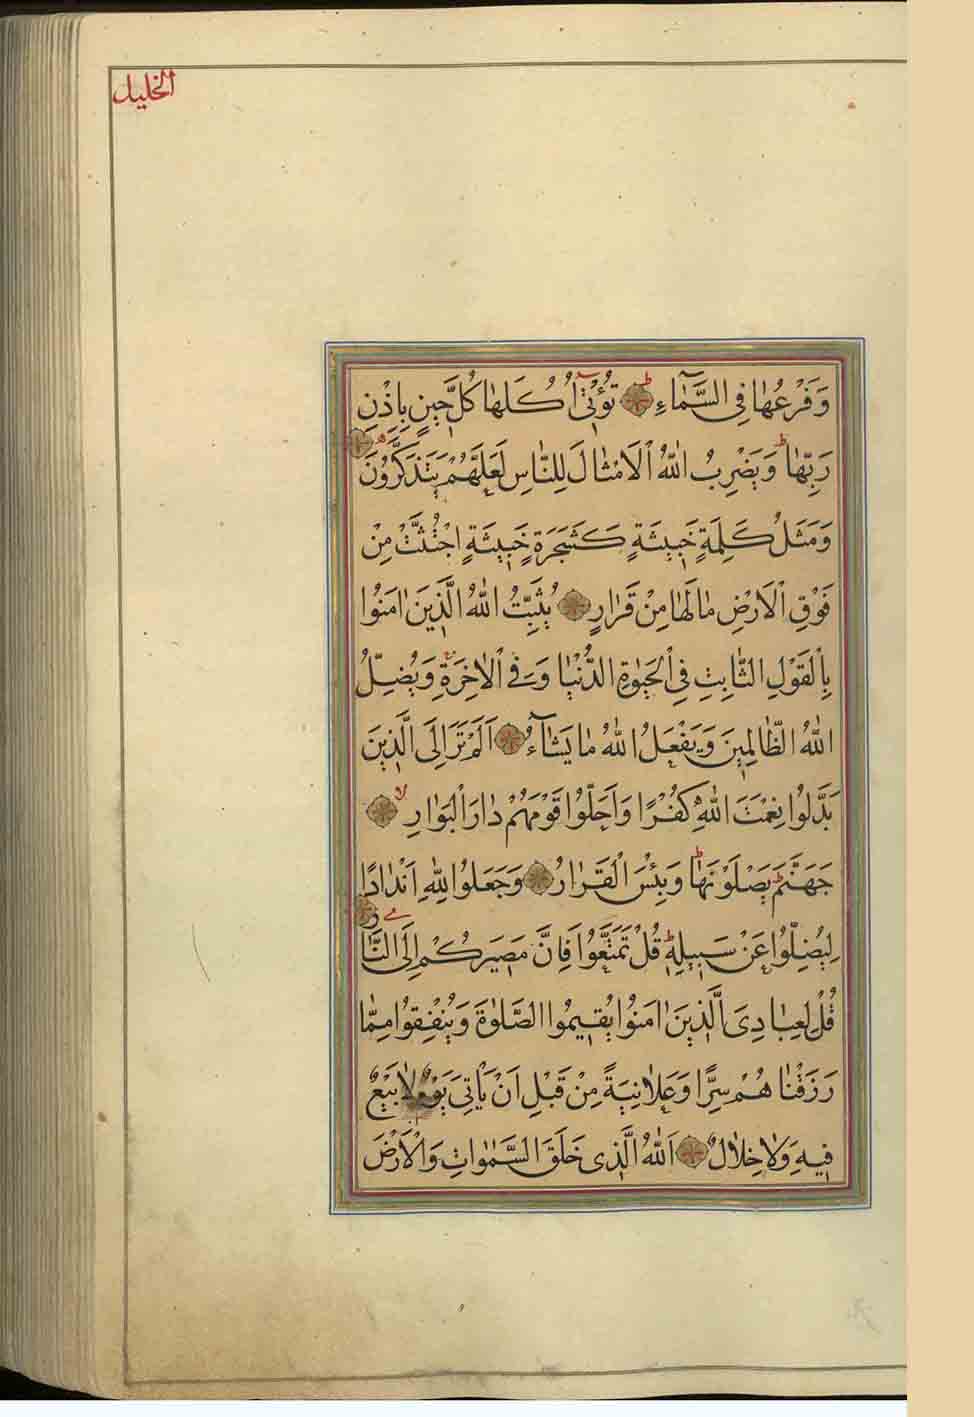 الخليل
وَفَرْعُهَا فِى السَّمَآءِ ط تُؤْتِىٓ اُكُلَهَا كُلَّ حِينٍ بِاِذْنِ
رَبِّهَا ط وَيَضْرِبُ اللّٰهُ الْاَمْثَالَ لِلنَّاسِ لَعَلَّهُمْ يَتَذَكَّرُونَ
وَمَثَلُ كَلِمَةٍ خَبِيثَةٍ كَشَجَرَةٍ خَبِيثَةٍ اجْتُثَّتْ مِنْ
فَوْقِ الْاَرْضِ مَا لَهَا مِنْ قَرَارٍ يُثَبِّتُ اللّٰهُ الَّذِينَ اٰمَنُوا
بِالْقَوْلِ الثَّابِتِ فِى الْحَيٰوةِ الدُّنْيَا وَفِى الْاٰخِرَةِ ج وَيُضِلُّ
اللّٰهُ الظَّالِمِينَ وَيَفْعَلُ اللّٰهُ مَا يَشَآءُ اَلَمْ تَرَ اِلَى الَّذِينَ
بَدَّلُوا نِعْمَتَ اللّٰهِ كُفْرًا وَاَحَلُّوا قَوْمَهُمْ دَارَ الْبَوَارِ لا
جَهَنَّمَ ج يَصْلَوْنَهَا ط وَبِئْسَ الْقَرَارُ وَجَعَلُوا لِلّٰهِ اَنْدَادًا
لِيُضِلُّوا عَنْ سَبِيلِهِ ط قُلْ تَمَتَّعُوا فَاِنَّ مَصِيرَكُمْ اِلَى النَّارِ
قُلْ لِعِبَادِىَ الَّذِينَ اٰمَنُوا يُقِيمُوا الصَّلٰوةَ وَيُنْفِقُوا مِمَّا
رَزَقْنَاهُمْ سِرًّا وَعَلَانِيَةً مِنْ قَبْلِ اَنْ يَأْتِىَ يَوْمٌ لَا بَيْعٌ
فِيهِ وَلَا خِلَالٌ اَللّٰهُ الَّذِى خَلَقَ السَّمٰوَاتِ وَالْاَرْضَ